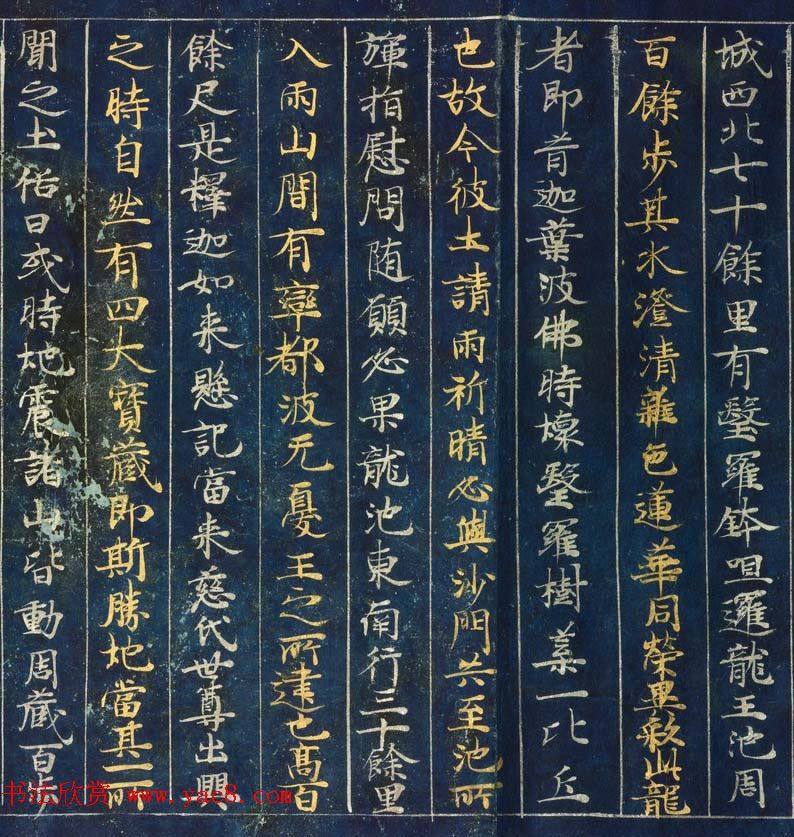 城西北七十餘里有毉羅鉢呾邏龍王池周
百餘步其水澄清雜色蓮華同榮異彩此龍
者即昔迦葉波佛時壞毉羅樹葉一比丘
也故今彼土請雨祈晴必與沙門共至池所
彈指慰問随願必果龍池東南行三十餘里
入兩山間有窣都波无憂王之所建也高百
餘尺是釋迦如来懸記當来慈氏世尊出興
之時自然有四大寶藏即斯勝地當其一所
聞之土俗曰或時地震諸山皆動周藏百步
书法欣赏 www.yac8.com